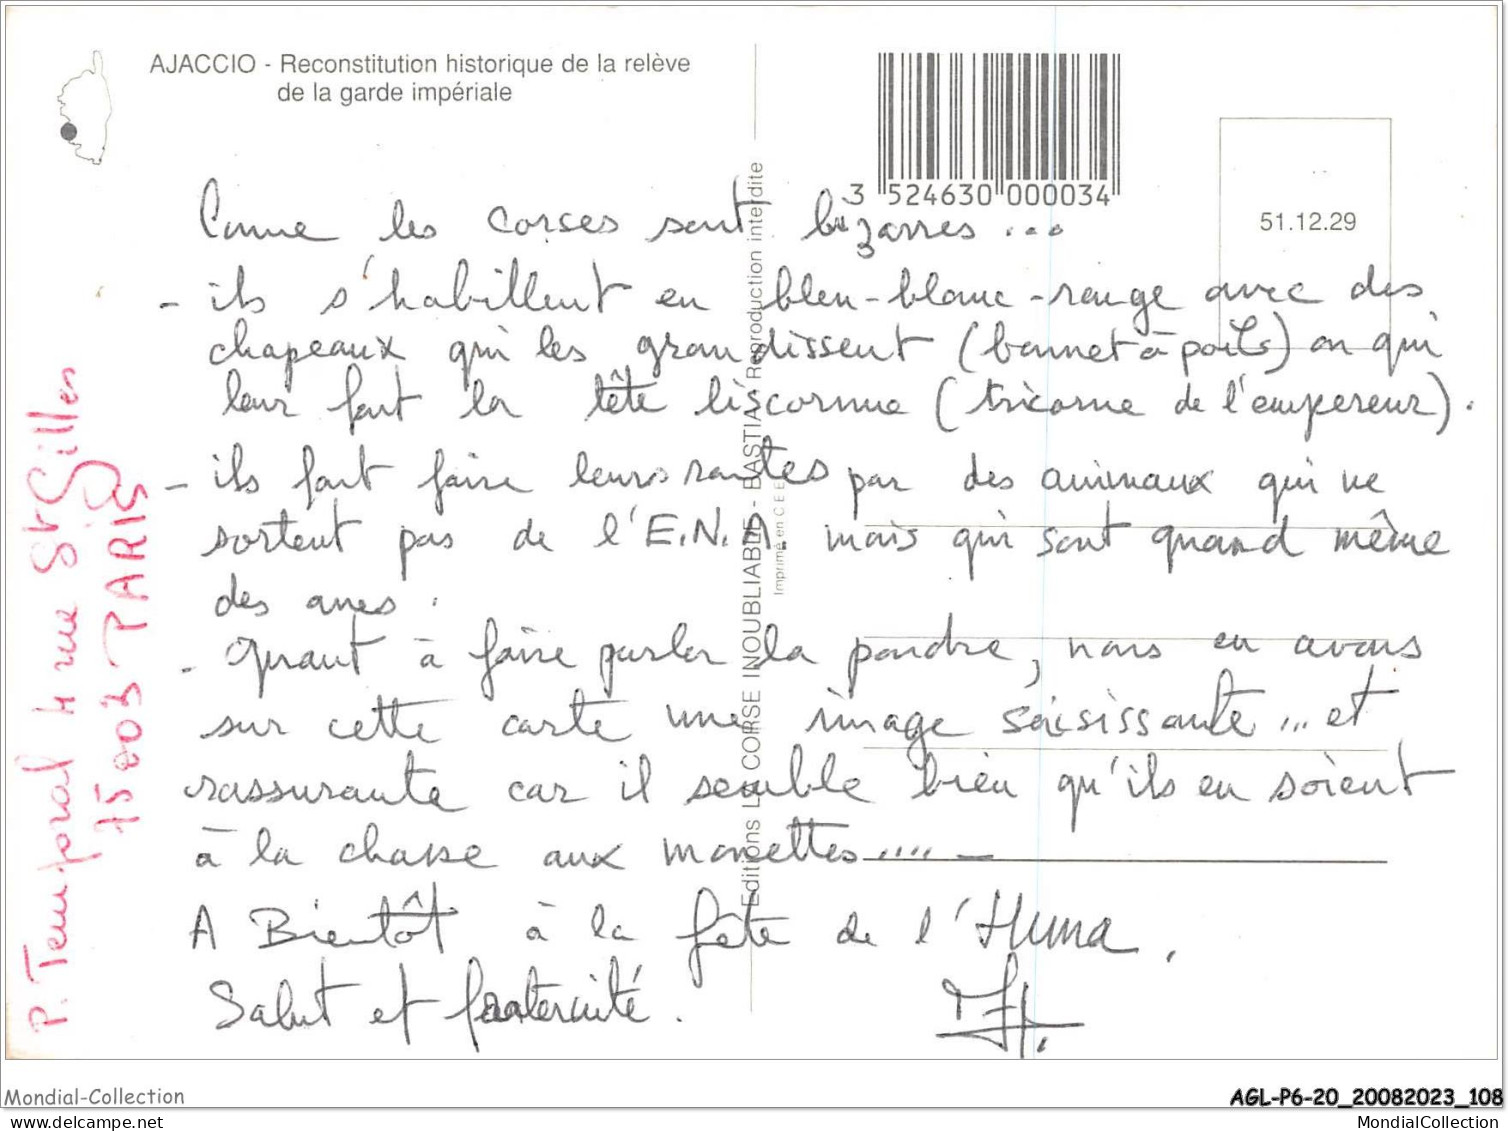 AJACCIO - Reconstitution historique de la relève
de la garde impériale
3 524630 000034
51.12.29
Comme les corses sont bizarres...
- ils s'habillent en bleu-blanc-rouge avec des
chapeaux qui les grandissent (bonnet à poils) ou qui
leur font la tête biscornue (tricorne de l'empereur).
- ils font faire leurs routes par des animaux qui ne
sortent pas de l'E.N.A. mais qui sont quand même
des anes.
- Quant à faire parler la poudre, nous en avons
sur cette carte une image saisissante... et
rassurante car il semble bien qu'ils en soient
à la chasse aux mouettes.... -
A Bientôt à la fête de l'Huma.
Salut et fraternité.
P. Temporal 4 rue St Gilles
75003 PARIS
Editions LA CORSE INOUBLIABLE - BASTIA - Reproduction interdite
Imprimé en C E E
Mondial-Collection
AGL-P6-20_20082023_108
mondial-collection
MondialCollection